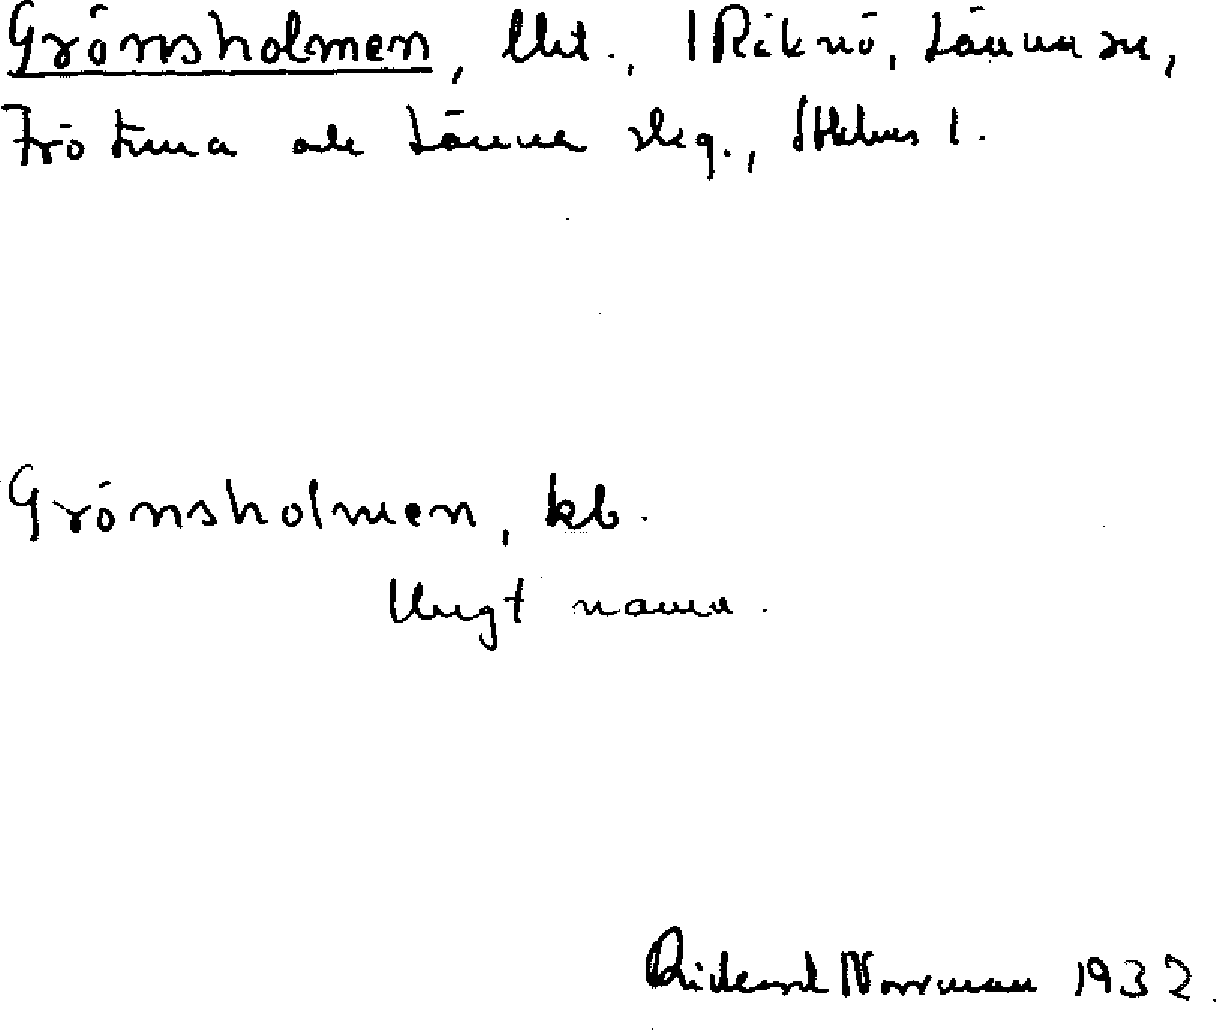 Grönsholmen, lht., 1 Riknö, Länna sn,
Frötuna och Länna skg., Sthlms l.
Grönsholmen, kb.
Ungt namn.
Rickard Norrman 1932.